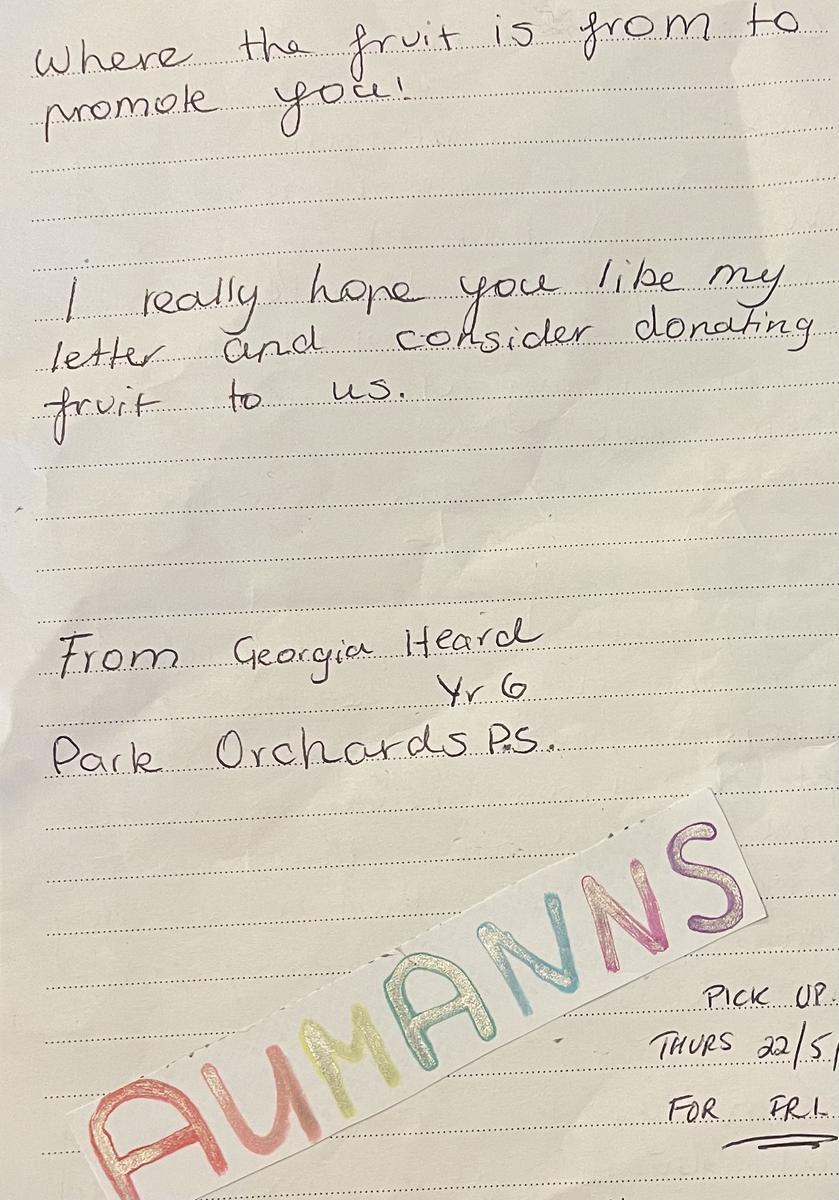 Where the fruit is from to
promote you!
I really hope you like my
letter and consider donating
fruit to us.
From Georgia Heard
Yr 6
Park Orchards P.S.
AUMANNS
PICK UP
THURS 22/5/
FOR FRI